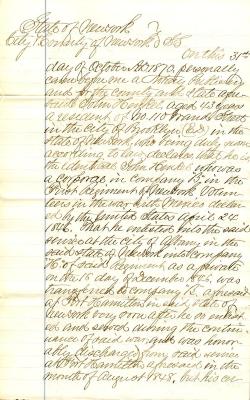 State of New York
City & County of New York } SS
On this 31st
day of October AD 1870, personally
came before me a Notary Public in
and for the county and state afore
said John Henkel, aged 43 years
a resident of No 110 Street
in the City of Brooklyn in the
state of New York, who being duly sworn
according to law, declares that he is
the identical John Henkel who was
a corporal in Company in the
First Regiment of New York Volun
teers in the war with Mexico declar
ed by the United States April 24
1846, That he enlisted into the said
service at the city of Albany in the
said state of New York into company
of said Regiment as a private
on the 18 day of December 1846, was
transferred to company aforesaid
at Fort Hamilton in said state of
New York very soon after he so enlist
ed and served during the contin
uance of said war and was honor
ably discharged from said service
at Fort Hamilton aforesaid in the
month of August 1848, but his